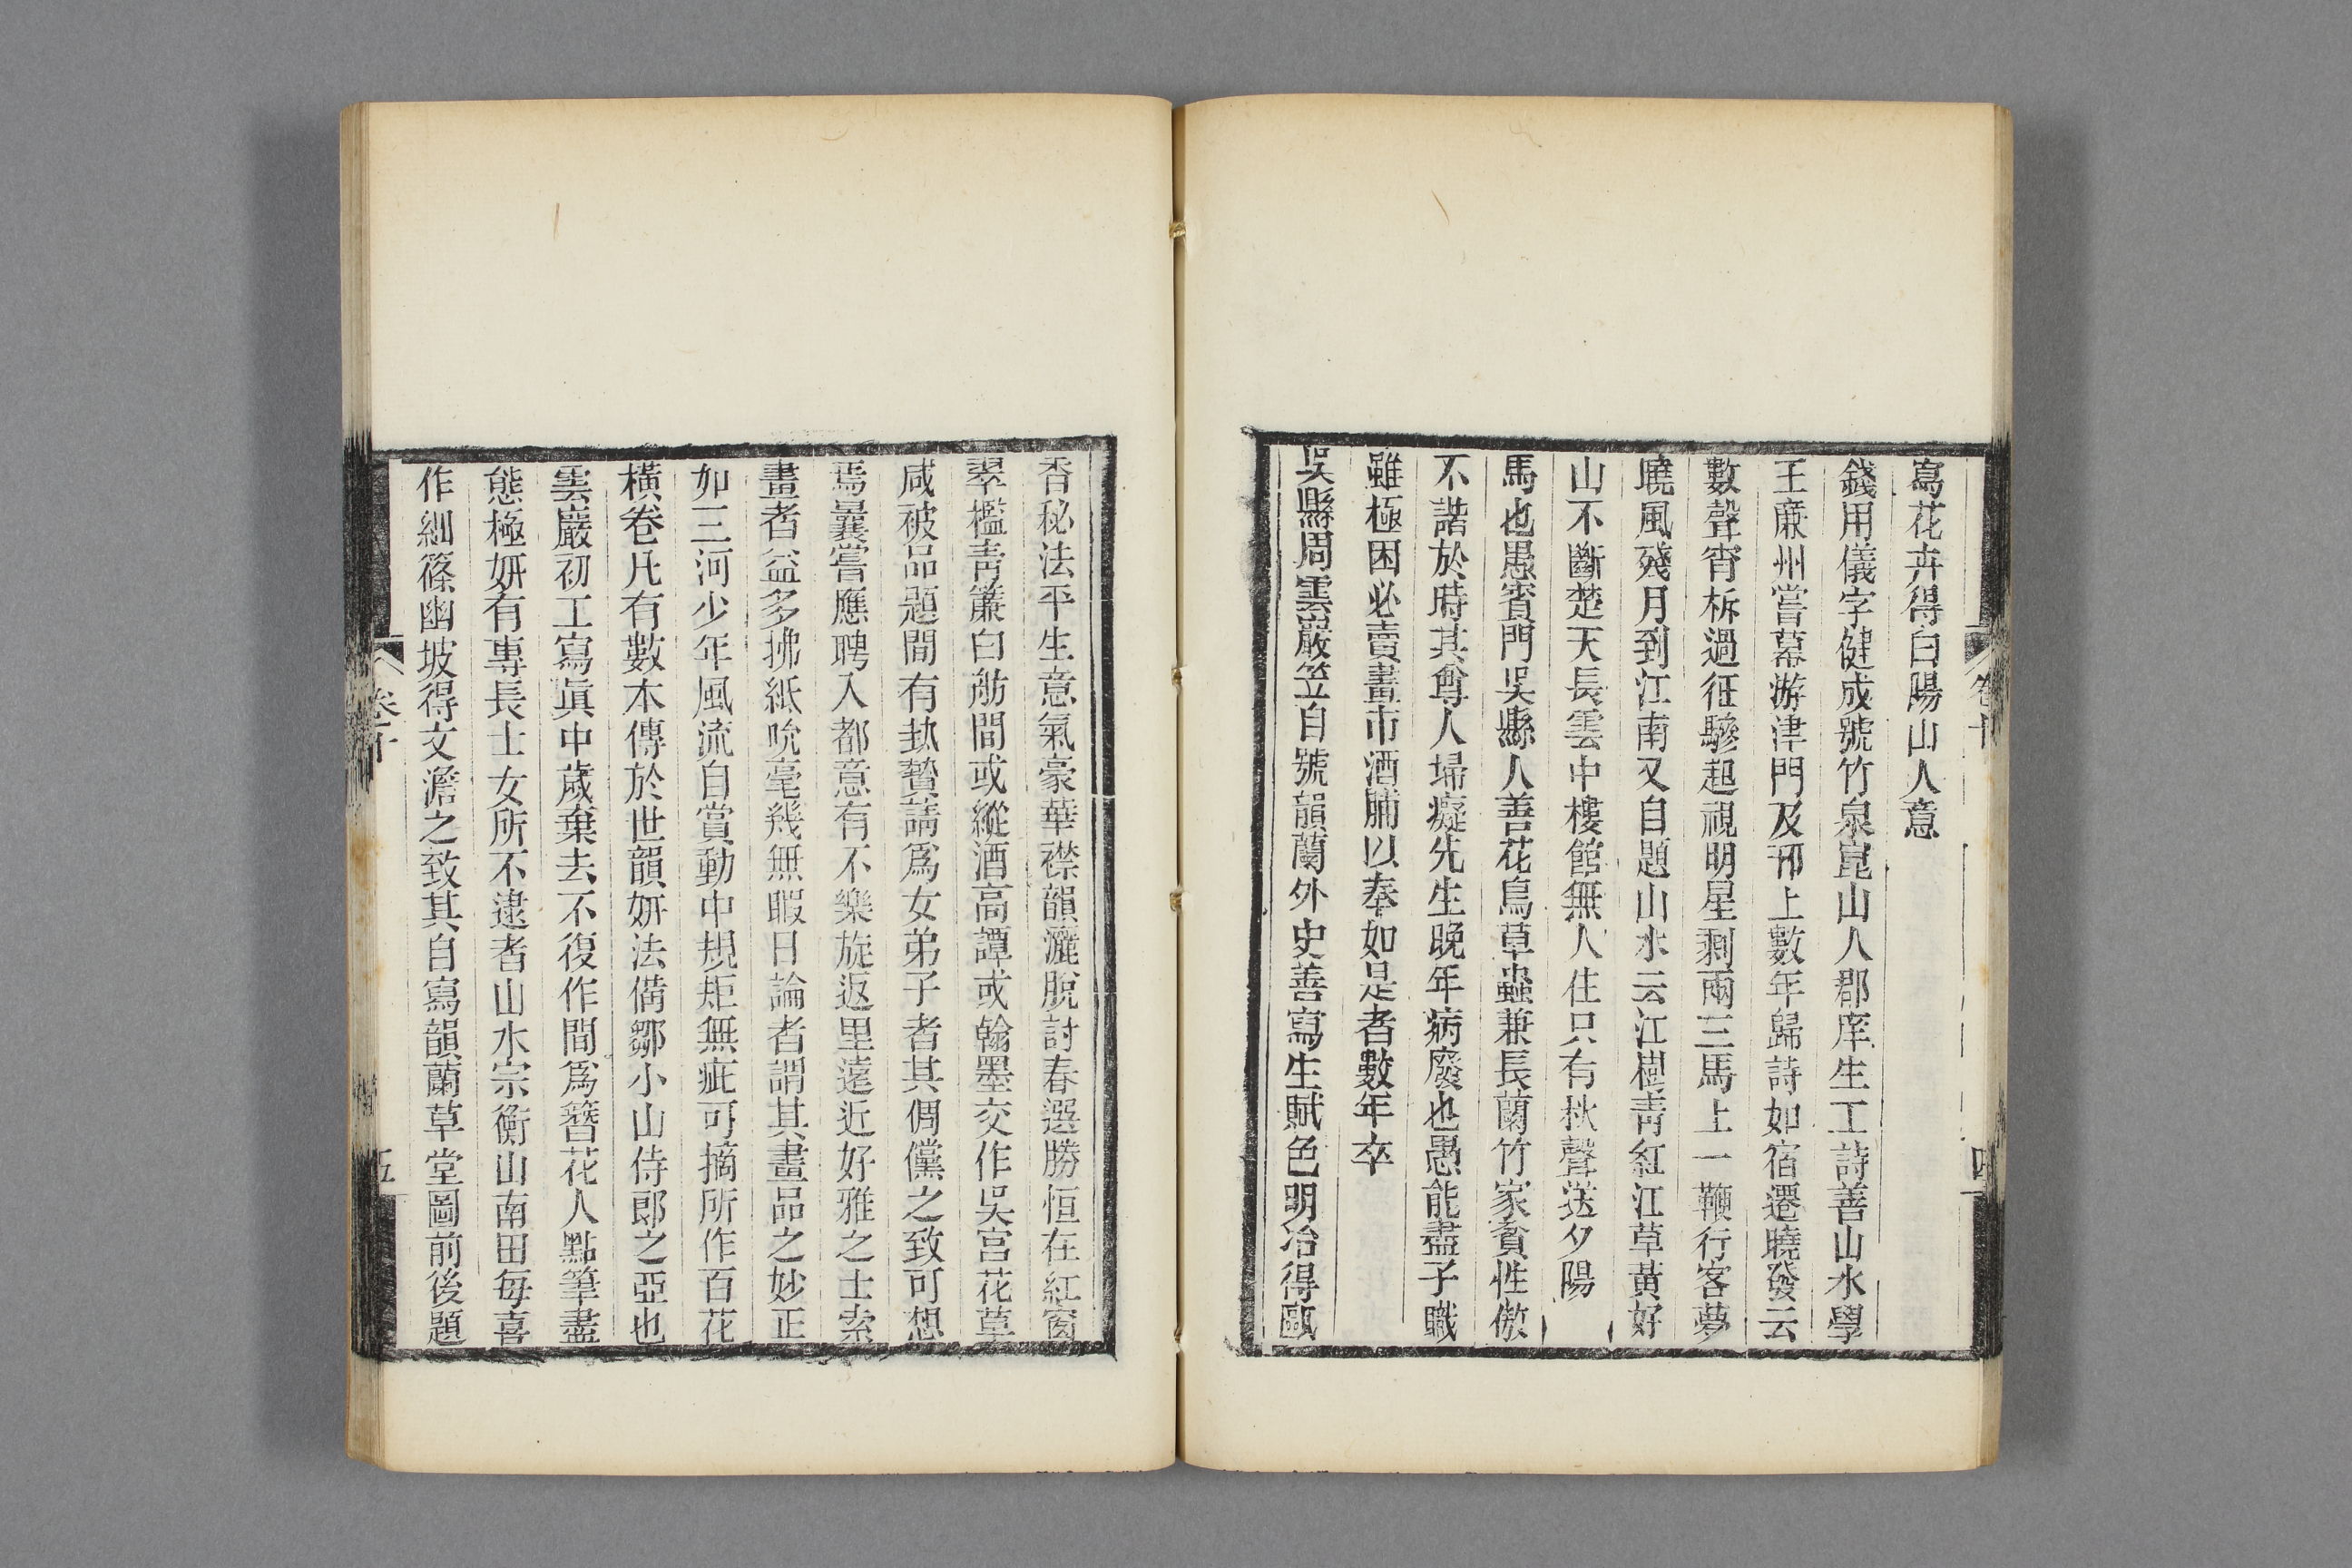 卷十
四
寫花卉得白陽山人意
錢用儀字健成號竹泉崑山人郡庠生工詩善山水學
王廉州嘗幕游津門及邗上數年歸詩如宿遷曉發云
數聲宵柝過征驂起視明星剩兩三馬上一鞭行客夢
曉風殘月到江南又自題山水云江樹青紅江草黃好
山不斷楚天長雲中樓館無人住只有秋聲送夕陽
馬也愚賓門吳縣人善花鳥草蟲兼長蘭竹家貧性傲
不諧於時其尊人埽癡先生晚年病廢也愚能盡子職
雖極困必賣畫市酒脯以奉如是者數年卒
吳縣周雲巖笠自號韻蘭外史善寫生賦色明冶得甌
香秘法平生意氣豪華襟韻灑脫討春選勝恒在紅窗
翠檻青簾白舫間或縱酒高譚或翰墨交作吳宮花草
咸被品題間有執贄請爲女弟子者其倜儻之致可想
焉曩嘗應聘入都意有不樂旋返里遠近好雅之士索
畫者益多拂紙吮毫幾無暇日論者謂其畫品之妙正
如三河少年風流自賞動中規矩無疵可摘所作百花
橫卷凡有數本傳於世韻妍法備鄒小山侍郎之亞也
雲巖初工寫眞中歲棄去不復作間爲簪花人點筆盡
態極妍有專長士女所不逮者山水宗衡山南田每喜
作細篠幽坡得文澹之致其自寫韻蘭草堂圖前後題
卷十
五